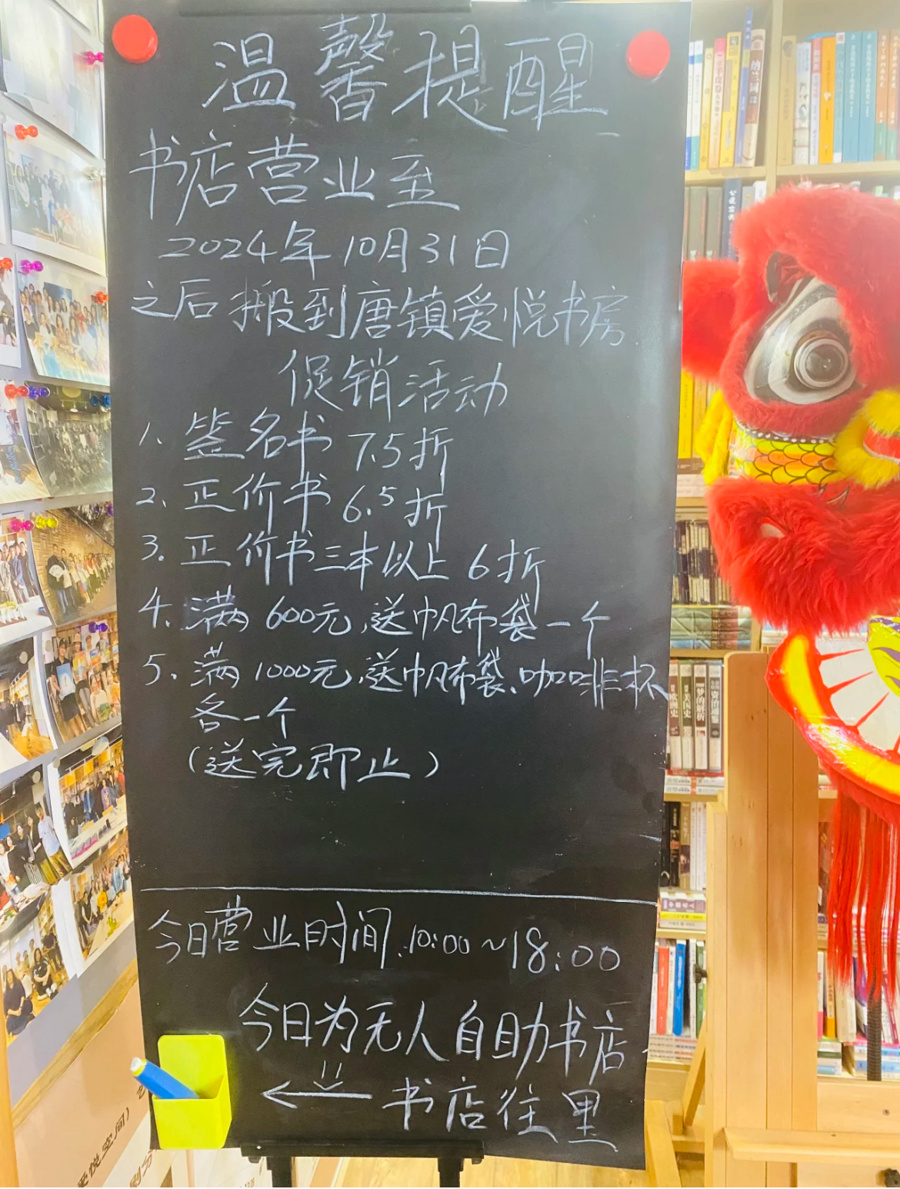 温馨提醒
书店营业至
2024年10月31日
之后搬到唐镇爱悦书房
促销活动
1. 签名书 7.5折
2. 正价书 6.5折
3. 正价书三本以上 6折
4. 满600元,送帆布袋一个
5. 满1000元,送帆布袋、咖啡杯
各一个
(送完即止)
今日营业时间:10:00~18:00
今日为无人自助书店
← 书店往里